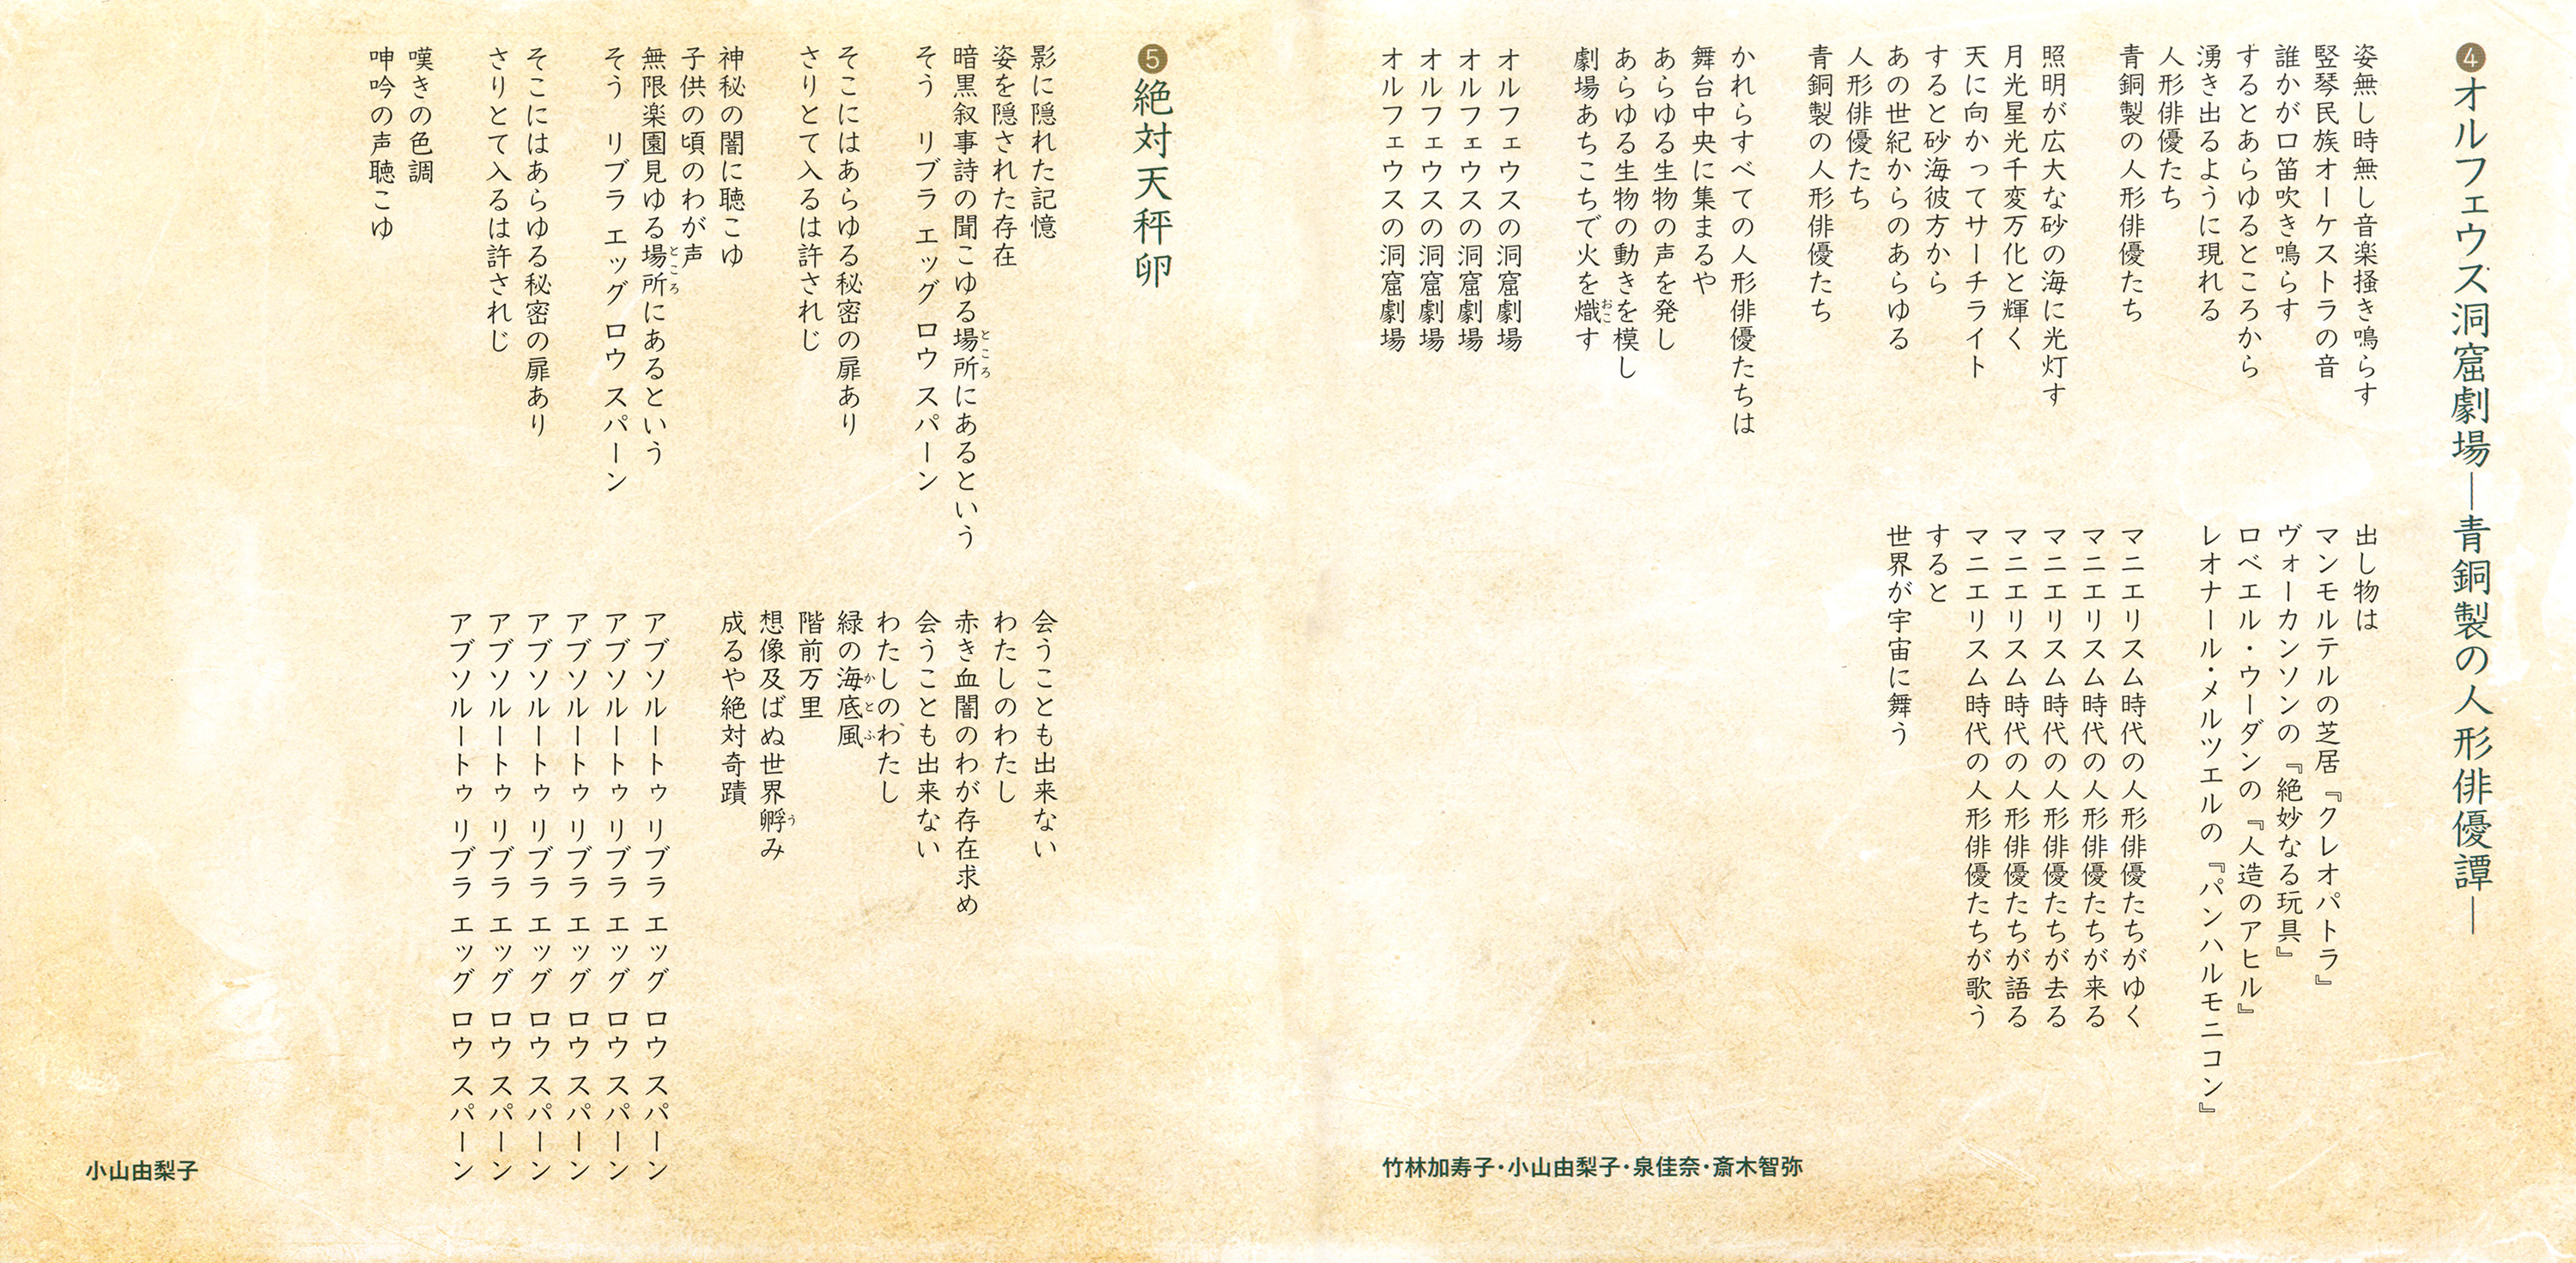 ❹オルフェウス洞窟劇場―青銅製の人形俳優譚―
姿無し時無し音楽掻き鳴らす
竪琴民族オーケストラの音
誰かが口笛吹き鳴らす
するとあらゆるところから
湧き出るように現れる
人形俳優たち
青銅製の人形俳優たち
照明が広大な砂の海に光灯す
月光星光千変万化と輝く
天に向かってサーチライト
すると砂海彼方から
あの世紀からのあらゆる
人形俳優たち
青銅製の人形俳優たち
かれらすべての人形俳優たちは
舞台中央に集まるや
あらゆる生物の声を発し
あらゆる生物の動きを模し
劇場あちこちで火を熾おこす
オルフェウスの洞窟劇場
オルフェウスの洞窟劇場
オルフェウスの洞窟劇場
オルフェウスの洞窟劇場
出し物は
マンモルテルの芝居『クレオパトラ』
ヴォーカンソンの『絶妙なる玩具』
ロベエル・ウーダンの『人造のアヒル』
レオナール・メルツエルの『パンハルモニコン』
マニエリスム時代の人形俳優たちがゆく
マニエリスム時代の人形俳優たちが来る
マニエリスム時代の人形俳優たちが去る
マニエリスム時代の人形俳優たちが語る
マニエリスム時代の人形俳優たちが歌う
すると
世界が宇宙に舞う
竹林加寿子・小山由梨子・泉佳奈・斎木智弥
❺絶対天秤卵
影に隠れた記憶
姿を隠された存在
暗黒叙事詩の聞こゆる場所ところにあるという
そう リブラ エッグ ロウ スパーン
そこにはあらゆる秘密の扉あり
さりとて入るは許されじ
神秘の闇に聴こゆ
子供の頃のわが声
無限楽園見ゆる場所ところにあるという
そう リブラ エッグ ロウ スパーン
そこにはあらゆる秘密の扉あり
さりとて入るは許されじ
嘆きの色調
呻吟の声聴こゆ
会うことも出来ない
わたしのわたし
赤き血闇のわが存在求め
会うことも出来ない
わたしのわたし
緑の海底風かとふ
階前万里
想像及ばぬ世界孵うみ
成るや絶対奇蹟
アブソルートゥ リブラ エッグ ロウ スパーン
アブソルートゥ リブラ エッグ ロウ スパーン
アブソルートゥ リブラ エッグ ロウ スパーン
アブソルートゥ リブラ エッグ ロウ スパーン
アブソルートゥ リブラ エッグ ロウ スパーン
アブソルートゥ リブラ エッグ ロウ スパーン
小山由梨子